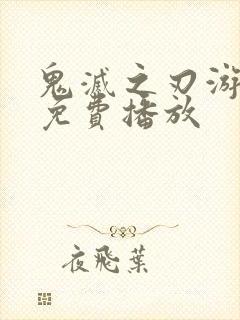 鬼滅之刃游
免費播放
夜飛葉